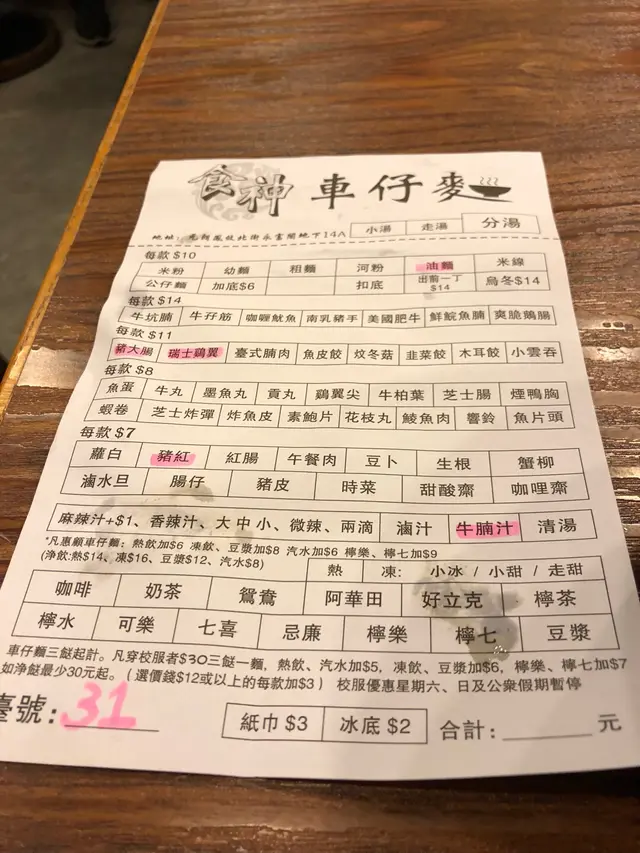 食神 車仔麥
地址: 元朗鳳攸北街永富閣地下14A 小湯 走湯 分湯
每款 $10
米粉 幼麵 粗麵 河粉 油麵 米線
公仔麵 加底$6 扣底 出前一丁$14 烏冬$14
每款 $14
牛坑腩 牛孖筋 咖喱魷魚 南乳豬手 美國肥牛 鮮鯇魚腩 爽脆鵝腸
每款 $11
豬大腸 瑞士鷄翼 臺式腩肉 魚皮餃 炆冬菇 韭菜餃 木耳餃 小雲吞
每款 $8
魚蛋 牛丸 墨魚丸 貢丸 鷄翼尖 牛柏葉 芝士腸 煙鴨胸
蝦卷 芝士炸彈 炸魚皮 素鮑片 花枝丸 鯪魚肉 響鈴 魚片頭
每款 $7
蘿白 豬紅 紅腸 午餐肉 豆卜 生根 蟹柳
滷水旦 腸仔 豬皮 時菜 甜酸齋 咖哩齋
麻辣汁+$1、香辣汁、大中小、微辣、兩滴 滷汁 牛腩汁 清湯
*凡惠顧車仔麵：熱飲加$6 凍飲、豆漿加$8 汽水加$6 檸樂、檸七加$9
(淨飲:熱$14、凍$16、豆漿$12、汽水$8) 熱 凍: 小冰 / 小甜 / 走甜
咖啡 奶茶 鴛鴦 阿華田 好立克 檸茶
檸水 可樂 七喜 忌廉 檸樂 檸七 豆漿
車仔麵三餸起計。凡穿校服者$30三餸一麵，熱飲、汽水加$5，凍飲、豆漿加$6，檸樂、檸七加$7
如淨餸最少30元起。(選價錢$12或以上的每款加$3) 校服優惠星期六、日及公衆假期暫停
臺號: 31 紙巾 $3 冰底 $2 合計: ________ 元